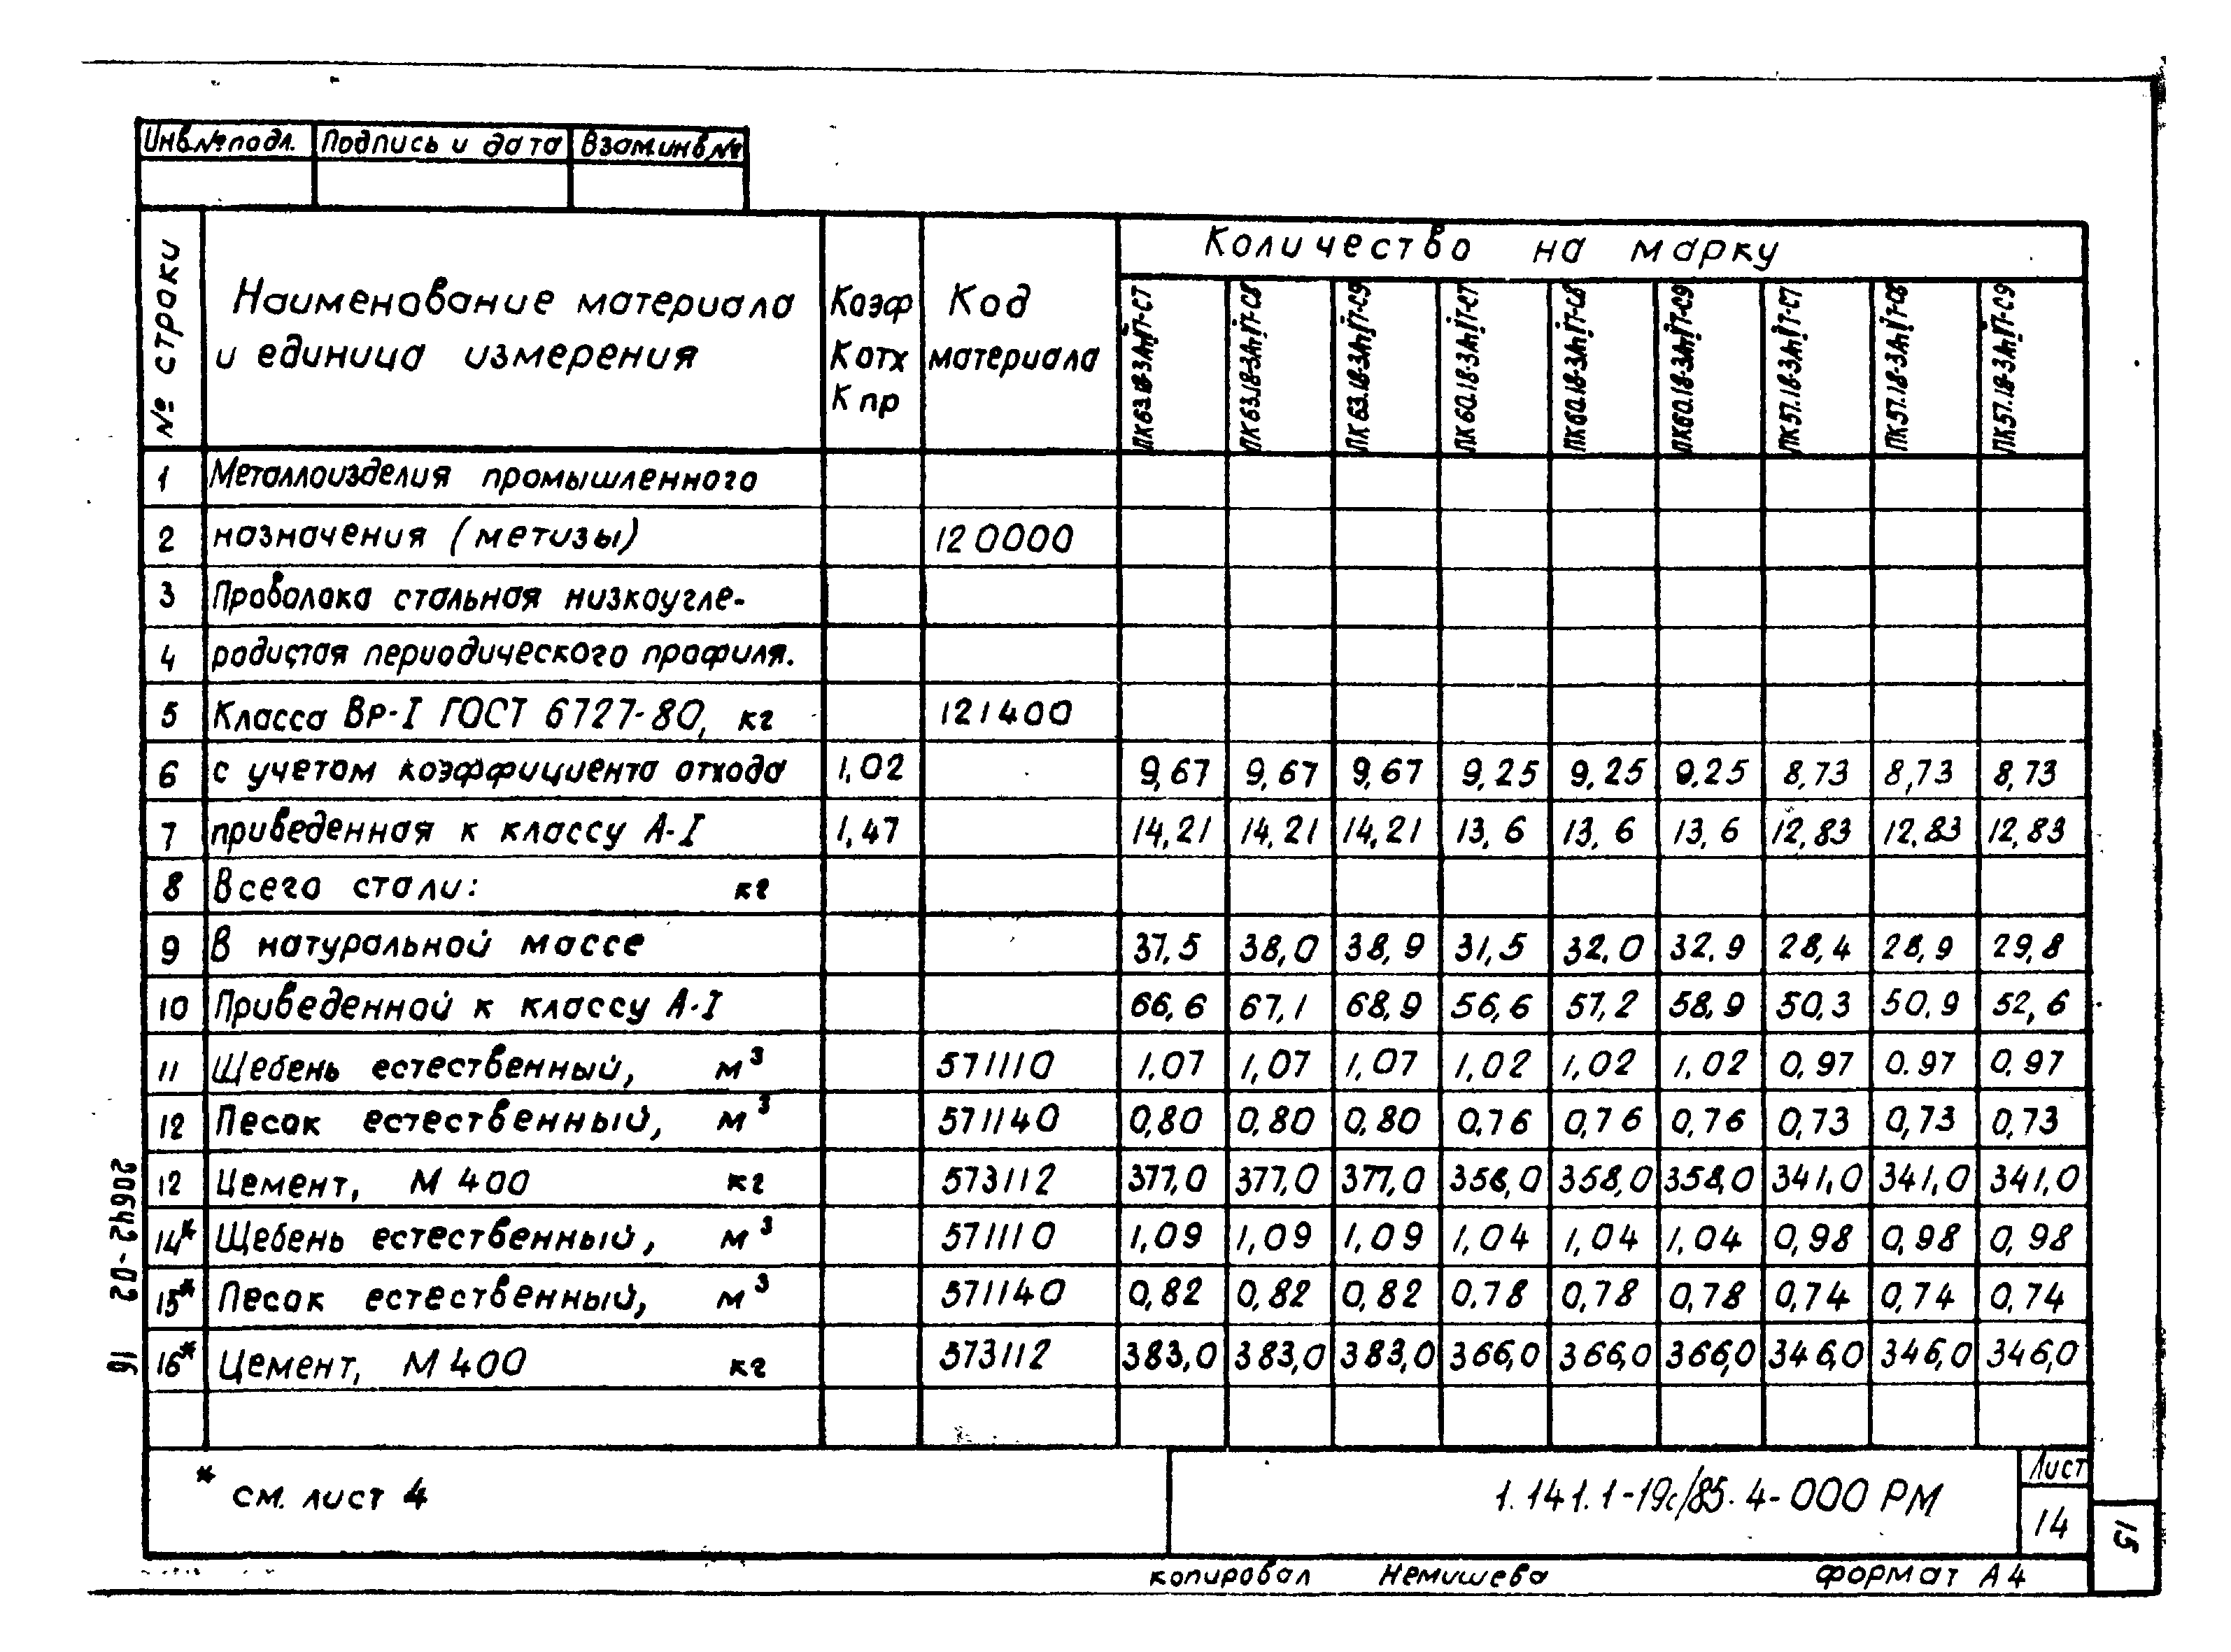 Инв.№ подл. Подпись и дата Взам.инв.№
№ строки
Наименование материала и единица измерения
Коэф К отх К пр
Код материала
Количество на марку
1 Металлоизделия промышленного
2 назначения (метизы) 120000
3 Проволока стальная низкоугле-
4 родистая периодического профиля.
5 Класса Вр-I ГОСТ 6727-80, кг 121400
6 с учетом коэффициента отхода 1,02 9,67 9,67 9,67 9,25 9,25 9,25 8,73 8,73 8,73
7 приведенная к классу А-I 1,47 14,21 14,21 14,21 13,6 13,6 13,6 12,83 12,83 12,83
8 Всего стали: кг
9 В натуральной массе 37,5 38,0 38,9 31,5 32,0 32,9 28,4 28,9 29,8
10 Приведенной к классу А-I 66,6 67,1 68,9 56,6 57,2 58,9 50,3 50,9 52,6
11 Щебень естественный, м³ 571110 1,07 1,07 1,07 1,02 1,02 1,02 0,97 0.97 0,97
12 Песок естественный, м³ 571140 0,80 0,80 0,80 0,76 0,76 0,76 0,73 0,73 0,73
12 Цемент, М 400 кг 573112 377,0 377,0 377,0 358,0 358,0 358,0 341,0 341,0 341,0
14* Щебень естественный, м³ 571110 1,09 1,09 1,09 1,04 1,04 1,04 0,98 0,98 0,98
15* Песок естественный, м³ 571140 0,82 0,82 0,82 0,78 0,78 0,78 0,74 0,74 0,74
16* Цемент, М 400 кг 573112 383,0 383,0 383,0 366,0 366,0 366,0 346,0 346,0 346,0
* см. лист 4
1.141.1-19с/85.4-000 РМ
Лист
14
15
копировал Немишева формат А4
20642-02 16